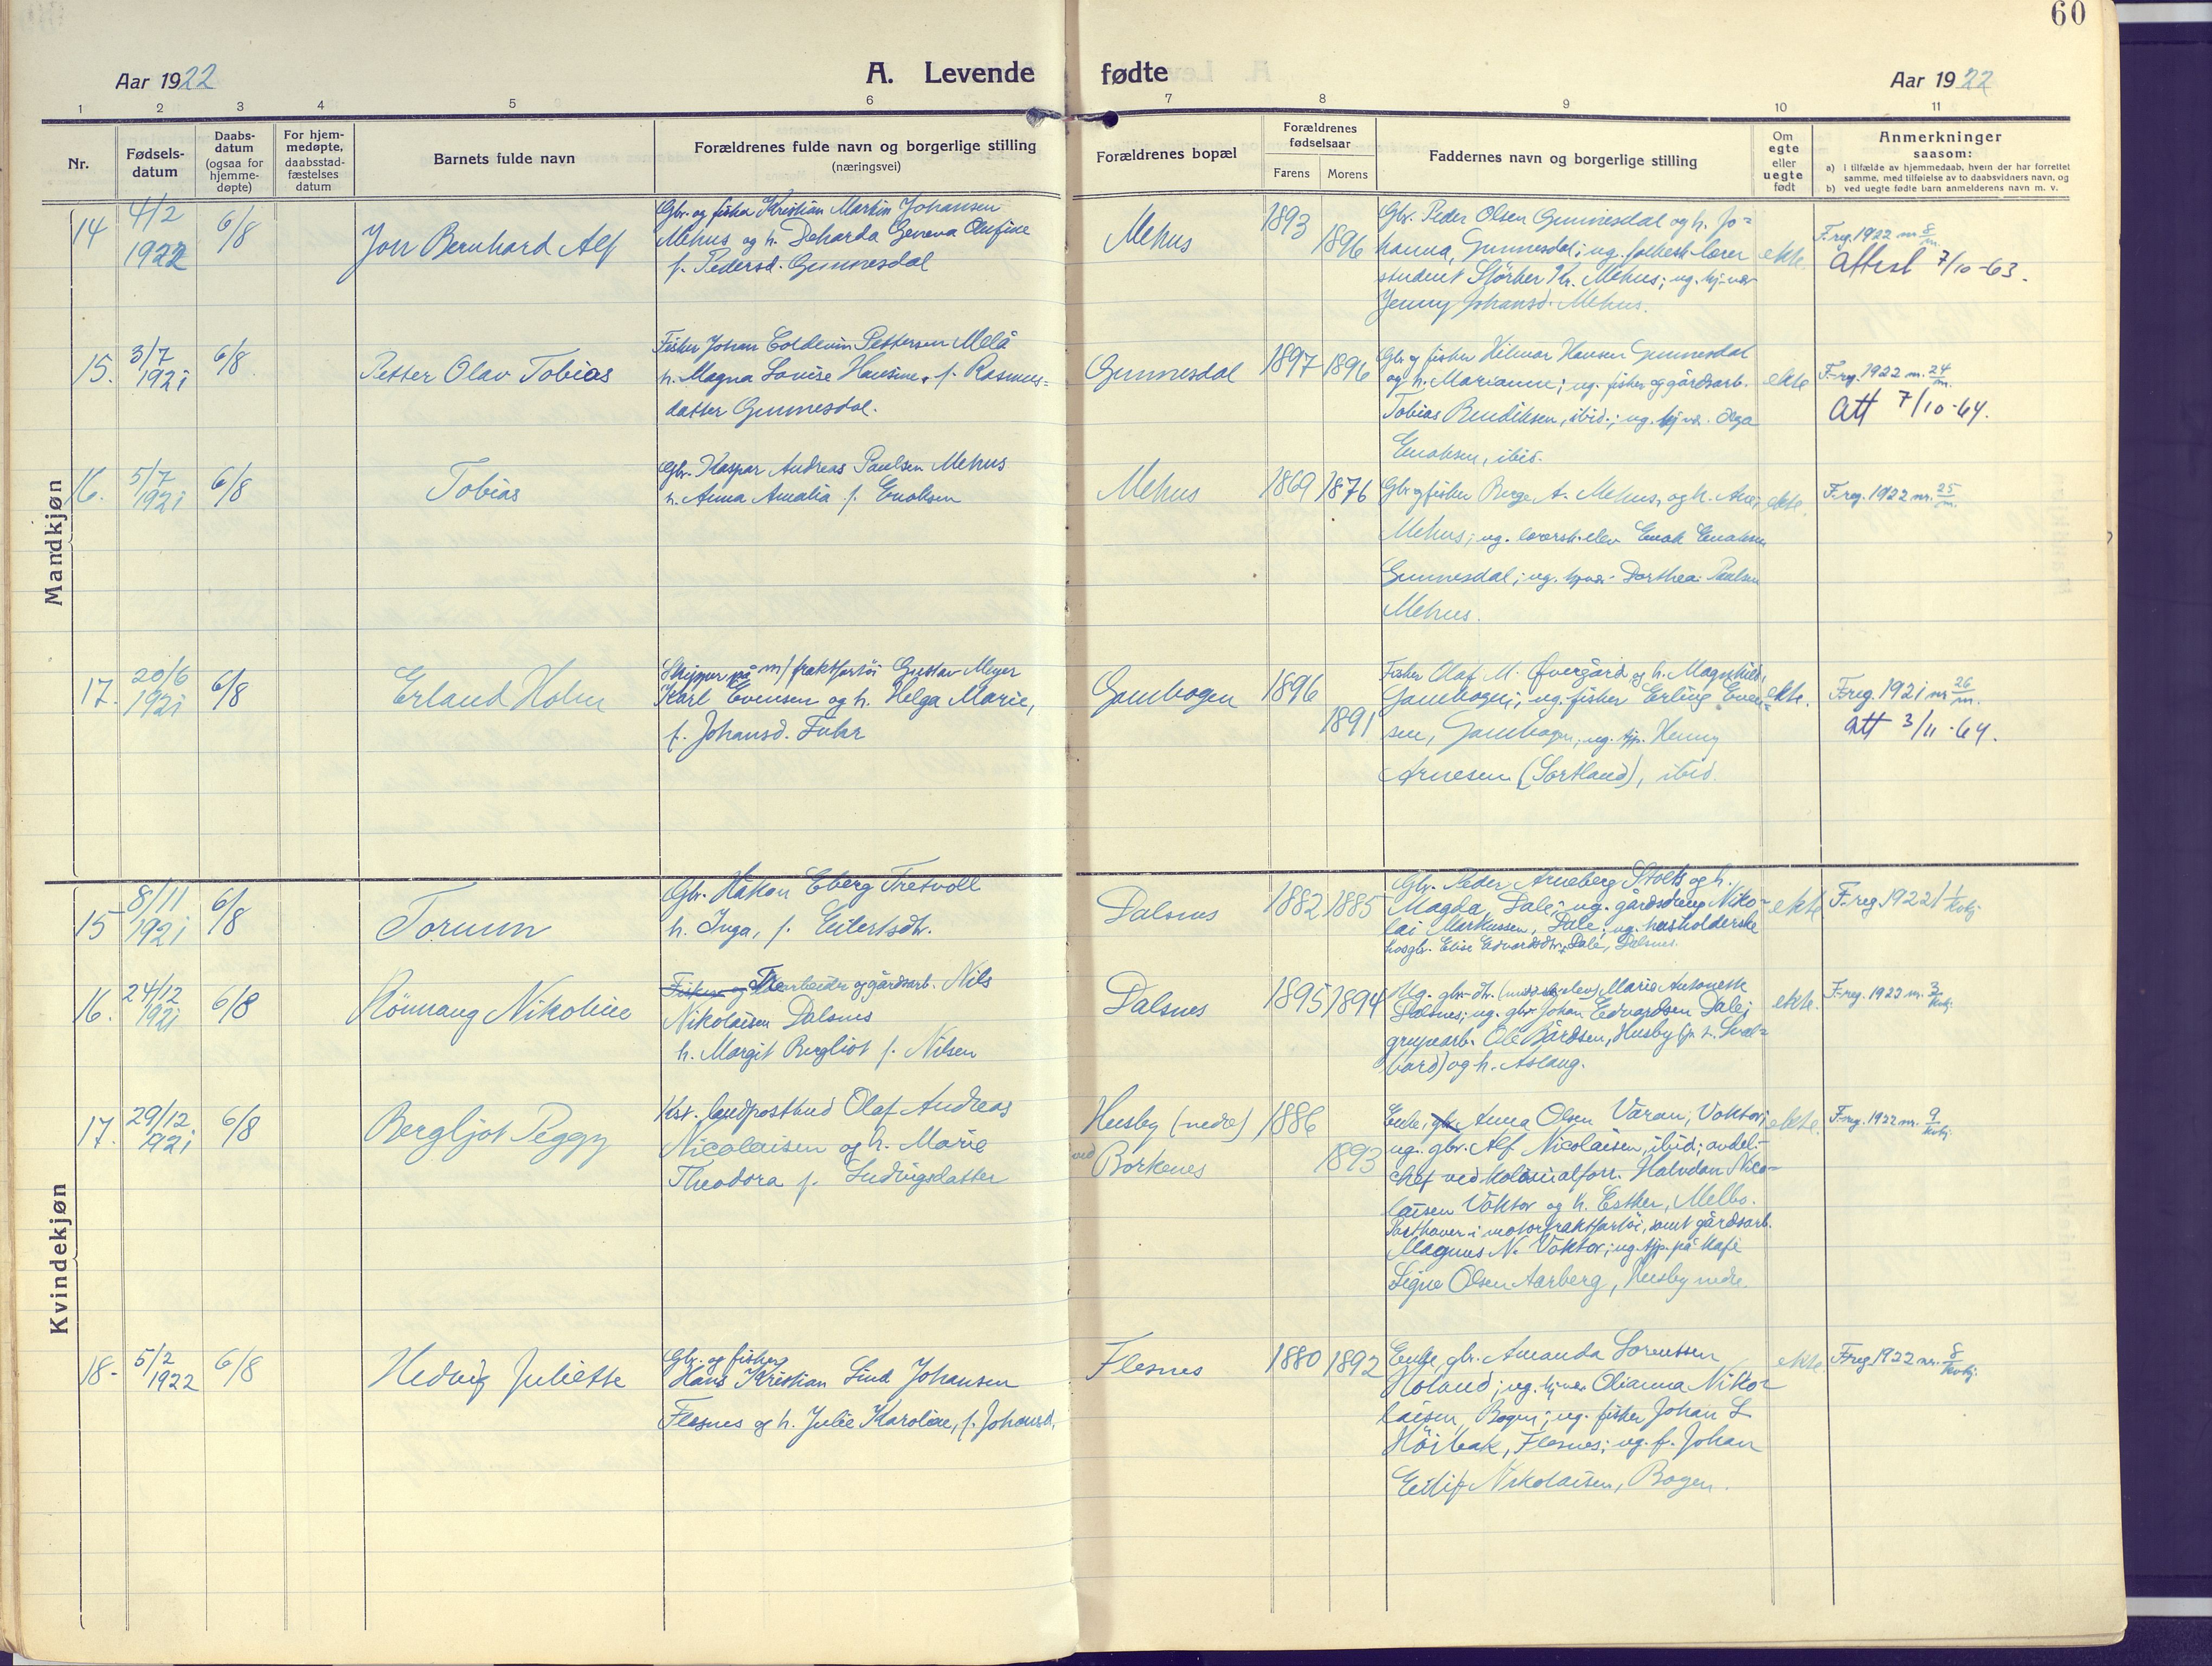 60
Aar 1922
A. Levende fødte
Aar 1922
1 2 3 4 5 6 7 8 9 10 11
Nr.
Fødsels-
datum
Daabs-
datum
(ogsaa for
hjemme-
døpte)
For hjem-
medøpte,
daabsstad-
fæstelses
datum
Barnets fulde navn
Forældrenes fulde navn og borgerlige stilling
(næringsvei)
Forældrenes bopæl
Forældrenes
fødselsaar
Farens Morens
Faddernes navn og borgerlige stilling
Om
egte
eller
uegte
født
Anmerkninger
saasom:
a) i tilfælde av hjemmedaab, hvem der har forrettet
samme, med tilføielse av to daabsvidners navn, og
b) ved uegte fødte barn anmelderens navn m. v.
Mandkjøn
14
4/2
1922
6/8
Jon Bernhard Alf
Gbr. og fisker Kristian Martin Johansen
Mehus og h. Deharda Geneva Olufine
f. Pedersd. Gunnesdal
Mehus
1893
1896
Gbr. Peder Olsen Gunnesdal og h. Jo=
hanna, Gunnesdal; ug. folkesk. lærer
student Störker Kr. Mehus; ug. hj.vær
Jenny Johansd. Mehus.
ekte.
F.reg. 1922 nr. 8/m.
Attest 7/10-63.
15.
3/7
1921
6/8
Petter Olav Tobias
Fisker Johan Coldevin Pettersen Melå
h. Magna Lovise Hansine, f. Rasmus=
datter Gunnesdal.
Gunnesdal
1897 1896
Gbr. og fisker Hilmar Hansen Gunnesdal
og h. Marianne; ug. fisker og gårdsarb.
Tobias Bendiksen, ibid.; ug. hj.vær. Olga
Enoksen, ibid.
ekte
F.reg. 1922 nr. 24/m.
Att 7/10-64.
16.
5/7
1921
6/8
Tobias
Gbr. Kaspar Andreas Paulsen Mehus
h. Anna Amalia f. Enoksen
Mehus
1869 1876
Gbr. og fisker Berge A. Mehus, og h.
Mehus; ug. lærersk. elev Enok Enoksen
Gunnesdal; ug. hj.vær. Dorthea Paulsen
Mehus.
ekte.
F.reg. 1922 nr. 25/m.
17.
20/6
1921
6/8
Erland Holm
Skipper på m/ fraktfartöi Gustav Meyer
Karl Evensen og h. Helga Marie,
f. Johansd.
1896
1891
Fisker Olaf M. Øvergård og h. Magnhild,
ug. fisker Erling Even=
sen, ug. tjp. Henny
Arnesen (Sortland), ibid.
ekte.
F.reg. 1921 nr. 26/m.
Att 3/11-64.
Kvindekjøn
15
8/11
1921
6/8
Torunn
Gbr. Håkon Eberg Tretvoll
h. Inga, f. Eilertsdtr.
Dalsnes
1882 1885
Gbr. Peder Arneberg Stoltz og h.
Magda, Dale; ug. gårdsdreng Niko-
lai Markussen, Dale; ug. husholderske
hosgbr. Elise Edvardsdtr, Dale, Dalsnes.
ekte
F.reg. 1922 1/kvkj.
16.
24/12
1921
6/8
Rönnaug Nikoline
Fisker og arbeider og gårdsarb. Nils
Nikolaisen Dalsnes
h. Margit Bergliot f. Nilsen
Dalsnes
1895 1894
Ug. gbr. dtr. Marie Antonette
Dalsnes; ug. gbr. Johan Edvardsen Dale;
grupearb. Ole Bårdsen, Husby (p. t. Sval=
bard) og h. Aslaug.
ekte.
F.reg. 1922 nr. 3/kvkj.
17.
29/12
1921
6/8
Bergljot Peggy
Kst. landpostbud Olaf Andreas
Nicolaisen og h. Marie
Theodora f. Ludvigsdatter
Husby (nedre)
ved Borkenes
1886
1893
Enke, gbr. Anna Olsen Våran, Voktor;
ug. gbr. Alf Nicolaisen, ibid; avdel.-
chef ved kolonialforr. Halvdan Nico-
laisen Voktor og h. Esther, Melbo.
Parthaver i motorfraktfartöi, samt gårdsarb.
Magnus N. Voktor; ug. tjp. på kafé
Signe Olsen Aarberg, Husby nedre.
ekte.
F.reg. 1922 nr. 9/kvkj.
18.
5/2
1922
6/8
Hedvig Juliette
Gbr. og fisker
Hans Kristian Lind Johansen
Flesnes og h. Julie Karoline, f. Johansd.
Flesnes
1880 1892
Enke, gbr. Amanda Lorentsen
Holand; ug. hj.vær. Olianna Niko=
laisen, Bogen; ug. fisker Johan L
Höibak, Flesnes; ug. f. Johan
Eilif Nikolaisen, Bogen.
ekte.
F.reg. 1922 nr. 8/kvkj.